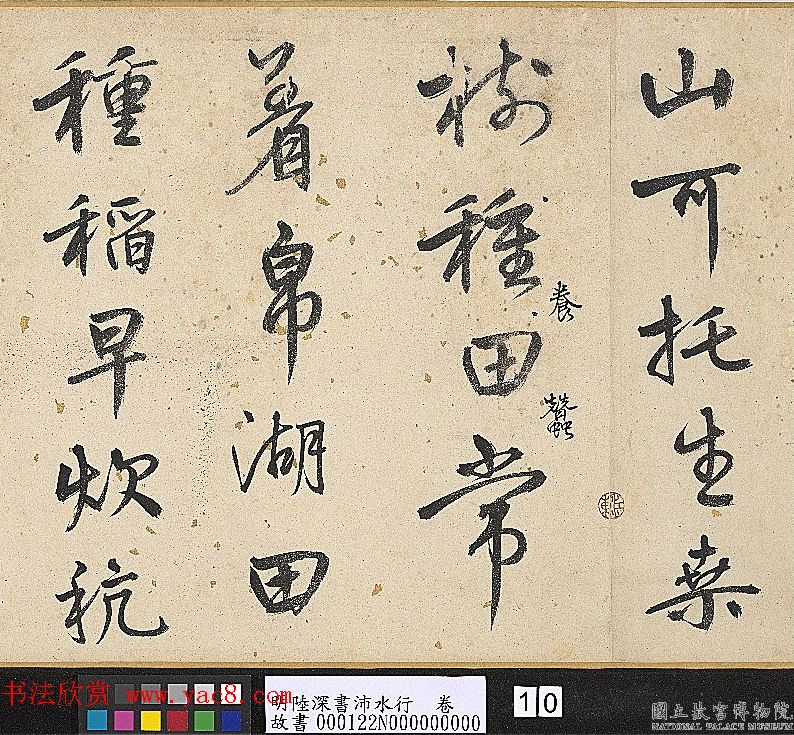 山可托生桑
樹種田常
養蠶
着帛湖田
種稻早炊秔
书法欣赏 www.yac8.com
明陸深書沛水行 卷
故書 000122N000000000
10
國立故宮博物院
NATIONAL PALACE MUSEUM